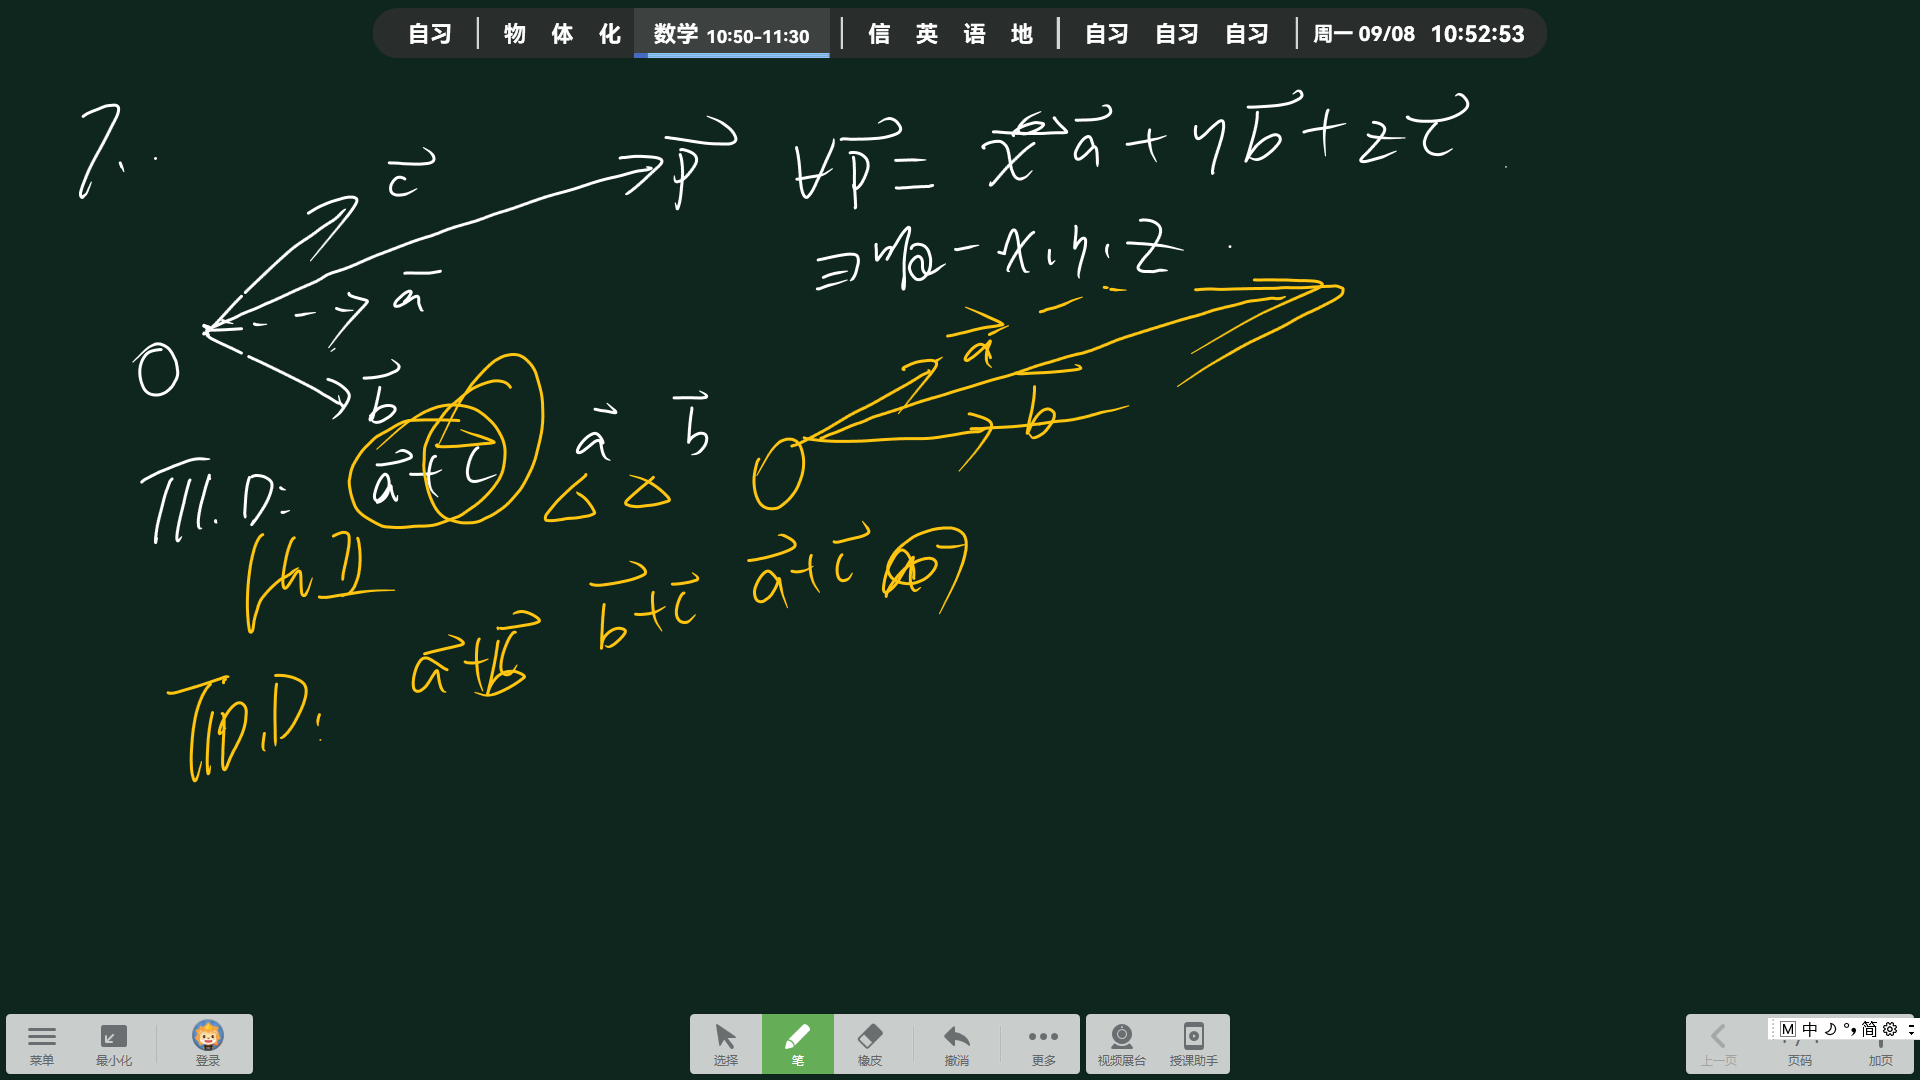 自习 | 物 体 化 数学 10:50-11:30 | 信 英 语 地 | 自习 自习 自习 | 周一 09/08 10:52:53
7.
c p ∀p = x a + y b + z c
a ∃ 唯一 x, y, z
O
b a
b
O
T11.D: a+c a b
△ △
a+b b+c a+c
T10.D:
菜单 最小化 登录 选择 笔 橡皮 撤消 更多 视频展台 授课助手 上一页 页码 加页
M 中 简